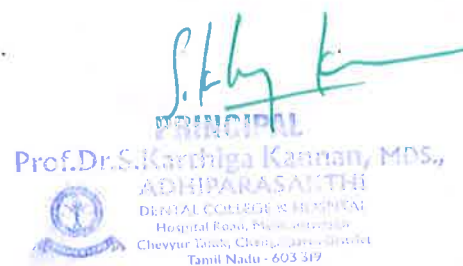 PRINCIPAL
Prof.Dr.S.Karthiga Kannan, MDS.,
ADHIPARASAKTHI
DENTAL COLLEGE & HOSPITAL
Hospital Road,
Cheyyur Taluk, District
Tamil Nadu - 603 319